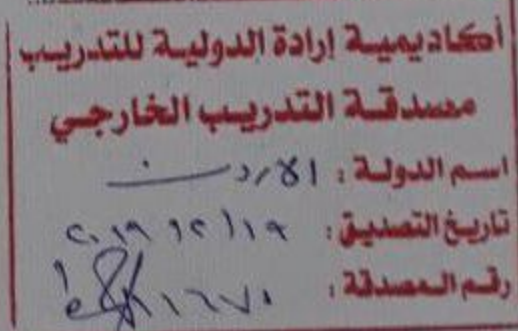 أكاديمية إرادة الدولية للتدريب
مصدقة التدريب الخارجي
اسم الدولة : الاردن
تاريخ التصديق : ٢٠١٩ ١٢/١٩
رقم المصدقة : ١٦٧١